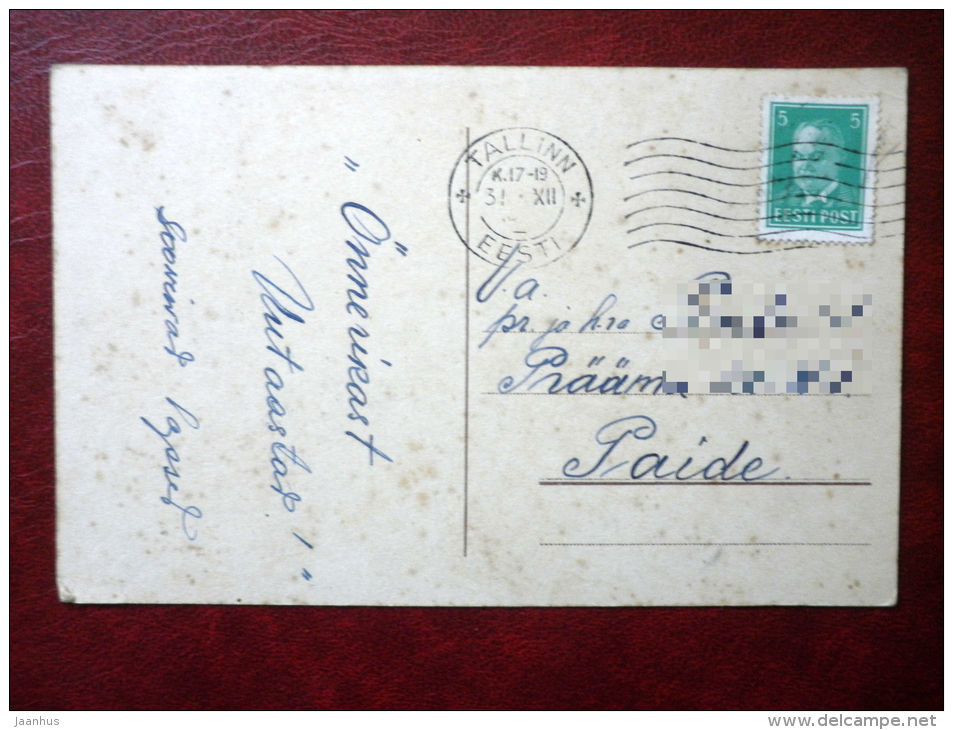 "Õnnerikast
Uut aastad!"
soovivad
TALLINN
K.17-19
31 XII
EESTI
5 5
EESTI POST
V.a.
pr. ja h-ra
Prääm
Paide.
Jaanhus
www.delcampe.net